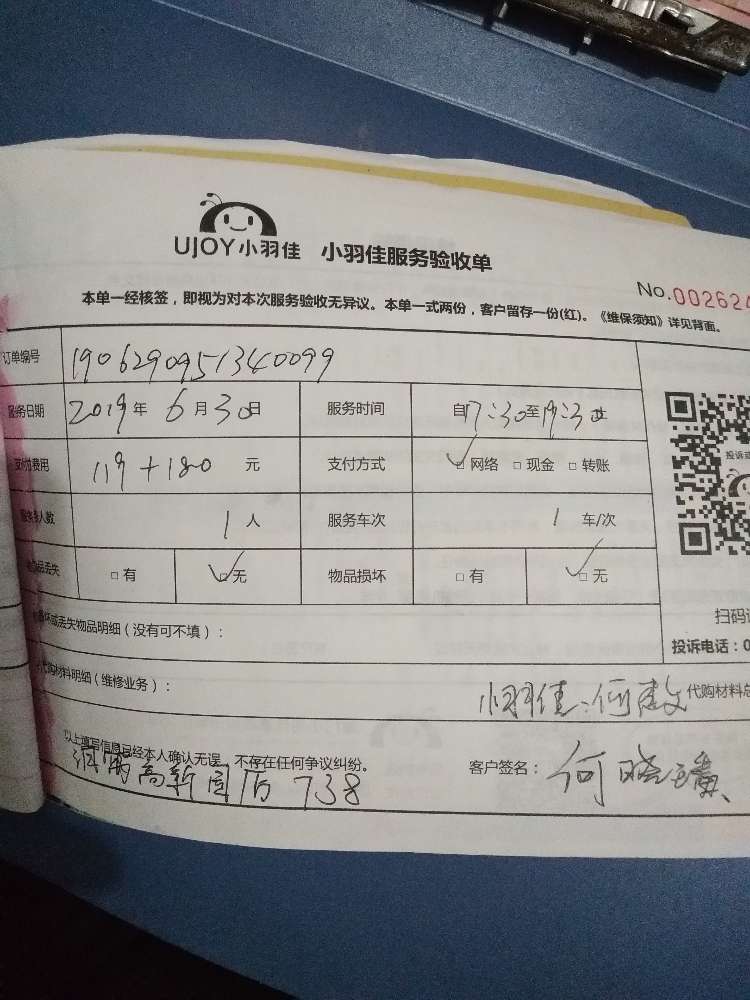 UJOY小羽佳 小羽佳服务验收单
No.002624
本单一经核签，即视为对本次服务验收无异议。本单一式两份，客户留存一份(红)。《维保须知》详见背面。
订单编号 1906290951340099
服务日期 2019年 6月30日 服务时间 自17:30至19:30止
支付费用 119+180 元 支付方式 ☑网络 □现金 □转账
服务人数 1人 服务车次 1 车/次
物品丢失 □有 ☑无 物品损坏 □有 ☑无
投诉
扫码
损坏或丢失物品明细（没有可不填）：
投诉电话：0
代购材料明细（维修业务）：
小羽佳:何 代购材料总
以上填写信息已经本人确认无误，不存在任何争议纠纷。
高新园 738
客户签名：何晓